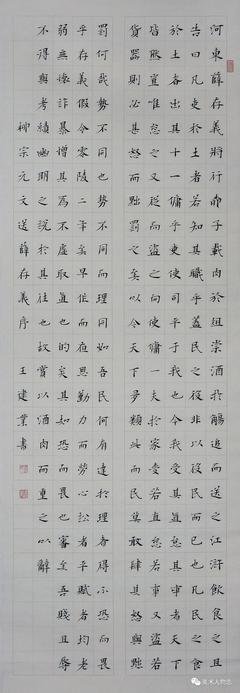 河東薛存義將行柳子載肉於俎崇酒於觴追而送之江滸飲食之且
告曰凡吏於土者若知其職乎蓋民之役非以役民而已也凡民之食
於土者出其十一傭乎吏使司平于我也今我受其直怠其事者天下
皆然豈惟怠之又從而盜之向使傭一夫於家受若直怠若事又盜若
貨器則必甚怒而黜罰之矣以今天下多類此而民莫敢肆其怒與黜
罰何哉勢不同也勢不同而理同如吾民何有達於理者得不恐而畏
乎存義假令零陵二年矣早作而夜思勤力而勞心訟者平賦者均老
弱無懷詐暴憎其為不虛取直也的矣其知恐而畏也審矣吾賤且辱
不得與考績幽明之說於其往也故賞以酒肉而重之以辭
柳宗元文送薛存義序 王建業書
美术人物志